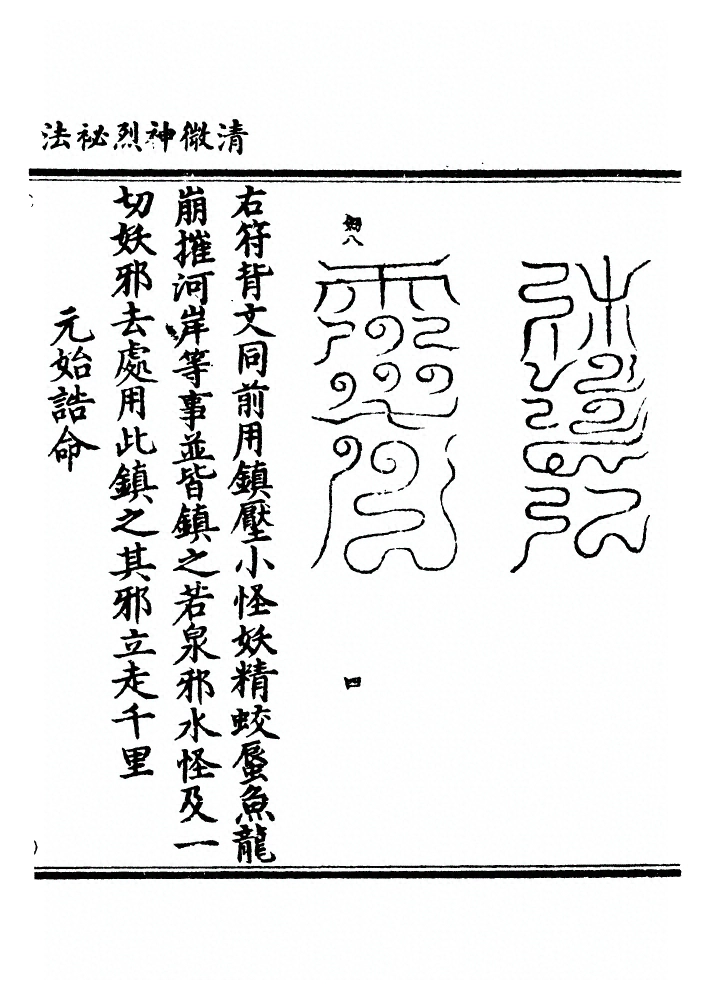 清微神烈祕法
八
四
右符背文同前用鎮壓小怪妖精蛟蜃魚龍
崩摧河岸等事並皆鎮之若泉邪水怪及一
切妖邪去處用此鎮之其邪立走千里
元始誥命